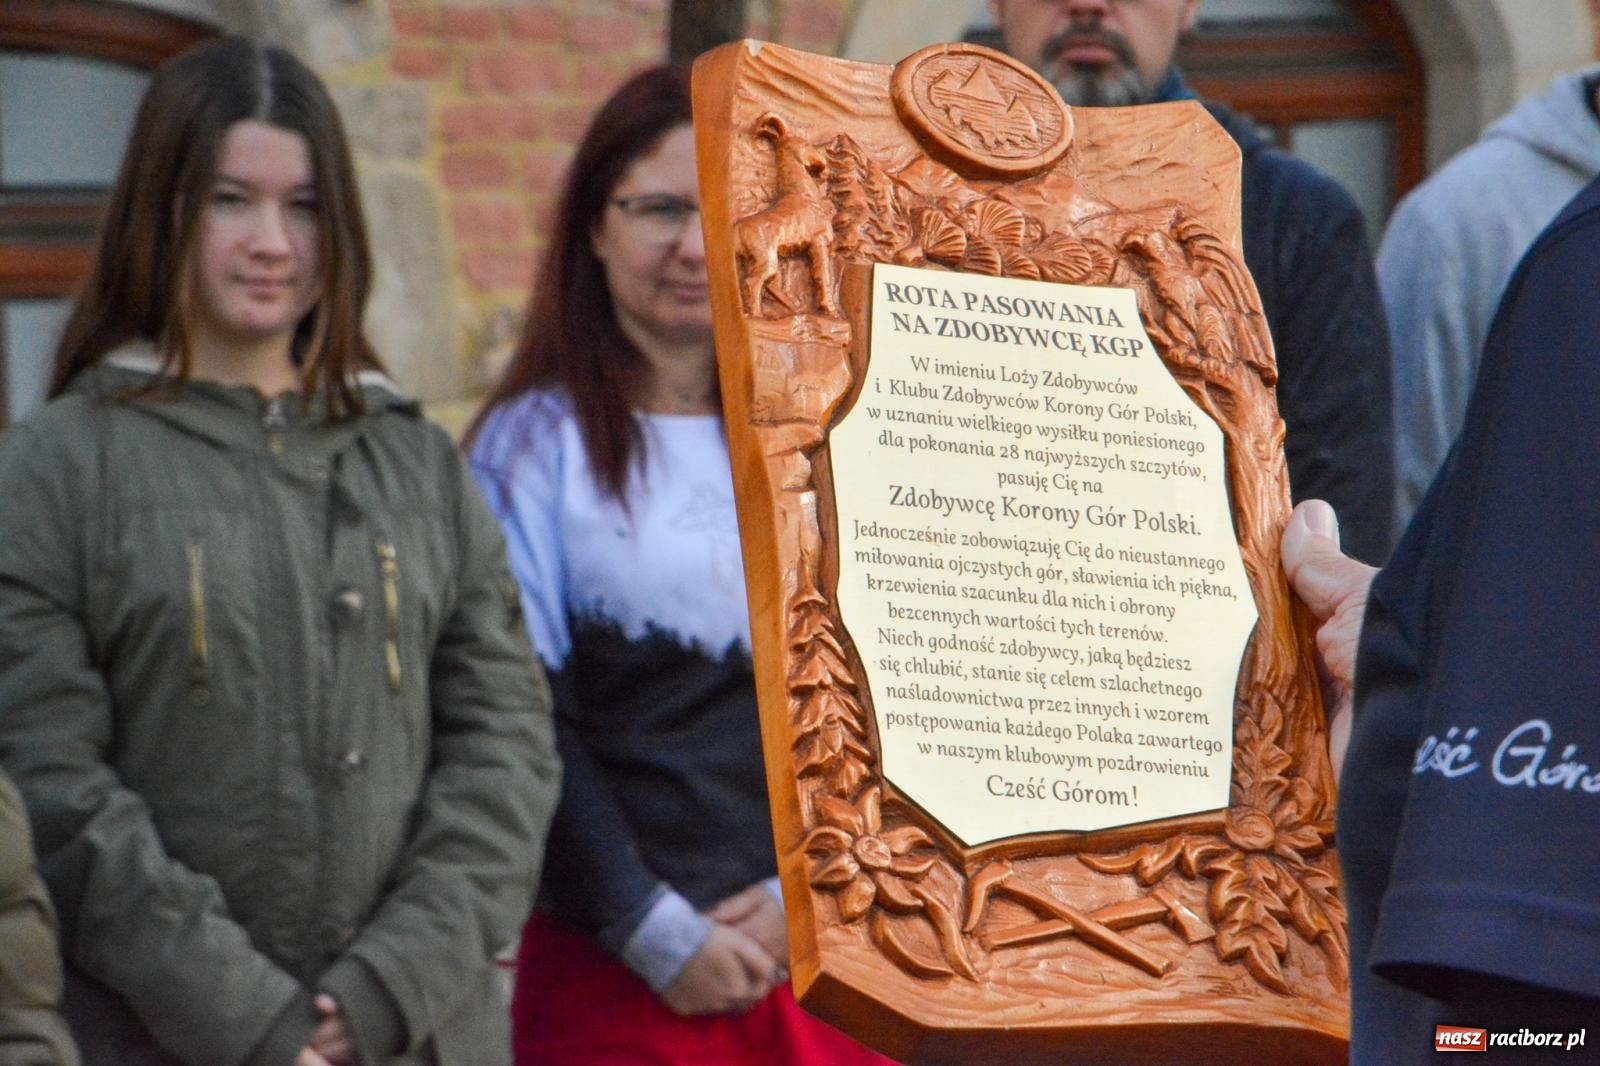 ROTA PASOWANIA
NA ZDOBYWCĘ KGP
W imieniu Loży Zdobywców
i Klubu Zdobywców Korony Gór Polski,
w uznaniu wielkiego wysiłku poniesionego
dla pokonania 28 najwyższych szczytów,
pasuję Cię na
Zdobywcę Korony Gór Polski.
Jednocześnie zobowiązuję Cię do nieustannego
miłowania ojczystych gór, sławienia ich piękna,
krzewienia szacunku dla nich i obrony
bezcennych wartości tych terenów.
Niech godność zdobywcy, jaką będziesz
się chlubić, stanie się celem szlachetnego
naśladownictwa przez innych i wzorem
postępowania każdego Polaka zawartego
w naszym klubowym pozdrowieniu
Cześć Górom!
eść Góro
nasz raciborz.pl